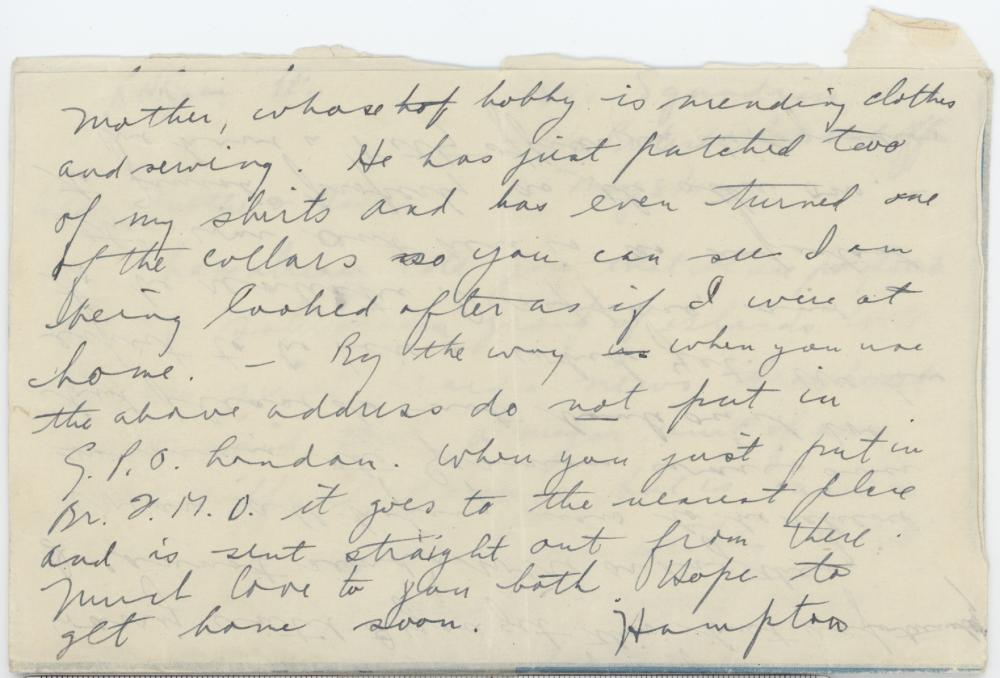 Mother, whose hobby is mending clothes
and sewing. He has just patched two
of my shirts and has even turned one
of the collars so you can see I am
being looked after as if I were at
home. – By the way when you use
the above address do not put in
G.P.O. London. When you just put in
Br. F.P.O. it goes to the nearest place
and is sent straight out from there.
Much love to you both. Hope to
get home soon. Hampton